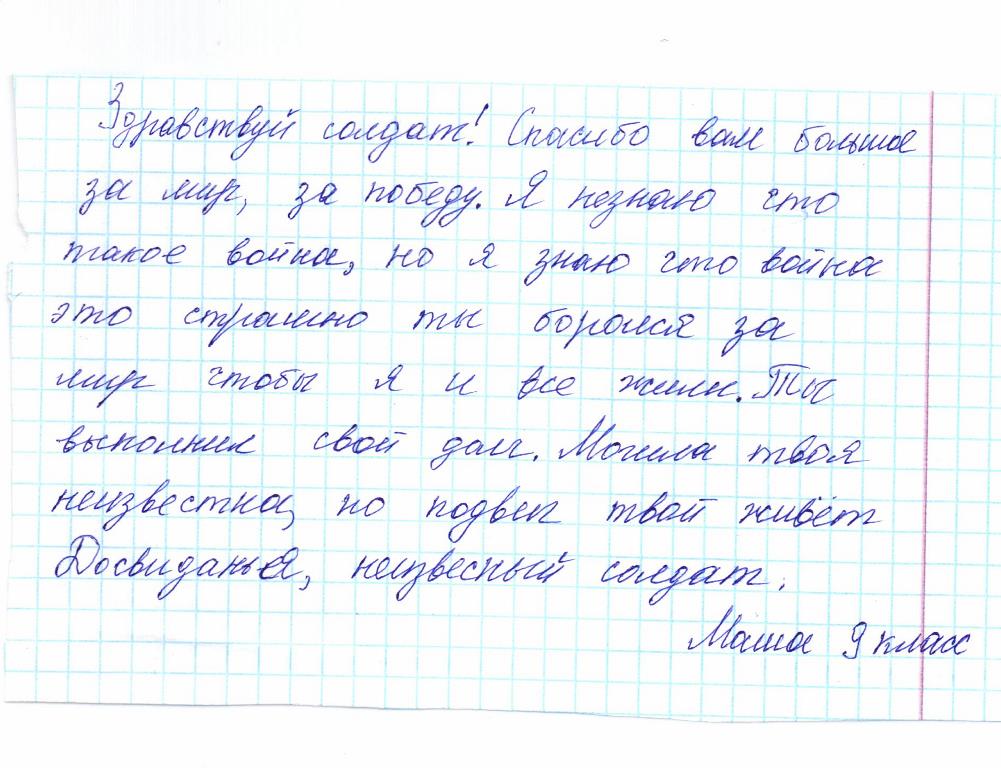 Здравствуй солдат! Спасибо вам большое
за мир, за победу. Я незнаю что
такое война, но я знаю что война
это страшно ты боролся за
мир чтобы я и все жили. Ты
выполнил свой долг. Могила твоя
неизвестна, но подвиг твой живёт
Досвиданья, неизвесный солдат.
Маша 9 класс